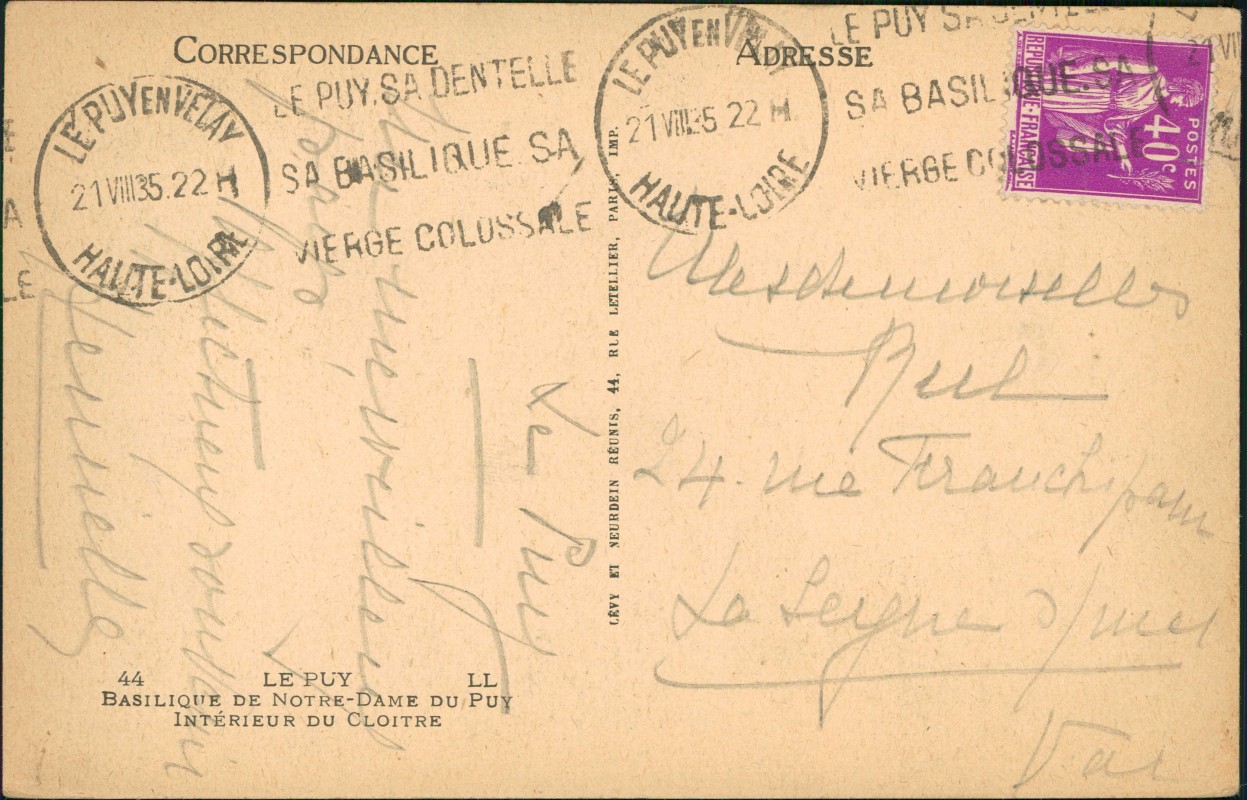 CORRESPONDANCE
ADRESSE
LE PUY EN VELAY
21 VIII 35. 22 H
HAUTE-LOIRE
LE PUY. SA DENTELLE
SA BASILIQUE. SA
VIERGE COLOSSALE
LE PUY EN VELAY
21 VIII 35 22 H
HAUTE-LOIRE
LE PUY SA DENTELLE
SA BASILIQUE. SA
VIERGE COLOSSALE
21 VII
E
A
LE
RÉPUBLIQUE-FRANÇAISE
POSTES
40c
Le Puy
merveilleux
pays
Affectueux souvenir
Mesdemoiselles
24 rue
La Seyne s/mer
Var
LÉVY ET NEURDEIN RÉUNIS, 44, RUE LETELLIER, PARIS, IMP.
44 LE PUY LL
BASILIQUE DE NOTRE-DAME DU PUY
INTÉRIEUR DU CLOITRE